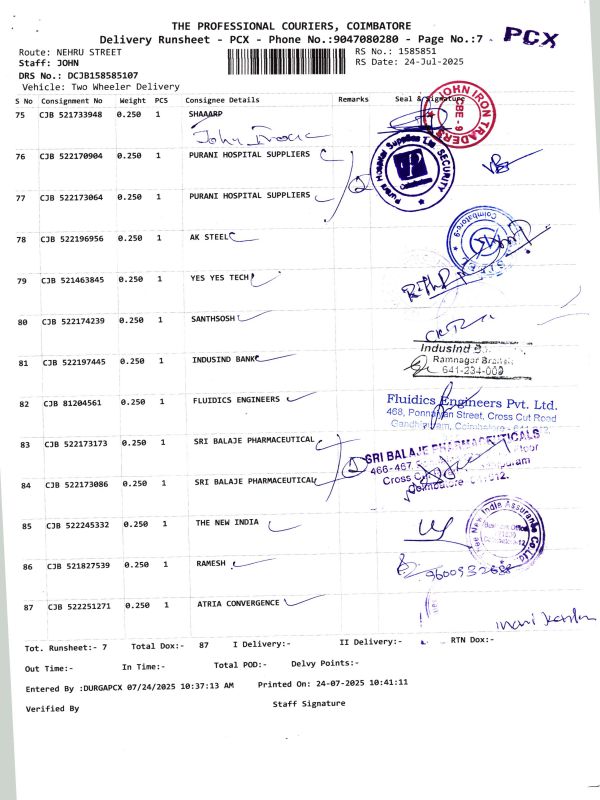 THE PROFESSIONAL COURIERS, COIMBATORE
Delivery Runsheet - PCX - Phone No.:9047080280 - Page No.:7
PCX
Route: NEHRU STREET
RS No.: 1585851
Staff: JOHN
RS Date: 24-Jul-2025
DRS No.: DCJB158585107
Vehicle: Two Wheeler Delivery
S No Consignment No Weight PCS Consignee Details Remarks Seal & Signature
75 CJB 521733948 0.250 1 SHAAARP
JOHN IRON TRADERS
CBE - 9
76 CJB 522170904 0.250 1 PURANI HOSPITAL SUPPLIERS
Purani Hospital Supplies Ltd SECURITY
Coimbatore
77 CJB 522173064 0.250 1 PURANI HOSPITAL SUPPLIERS
78 CJB 522196956 0.250 1 AK STEEL
Coimbatore-9
79 CJB 521463845 0.250 1 YES YES TECH
80 CJB 522174239 0.250 1 SANTHSOSH
81 CJB 522197445 0.250 1 INDUSIND BANK
IndusInd
Ramnagar
641-234-009
82 CJB 81204561 0.250 1 FLUIDICS ENGINEERS
Fluidics Engineers Pvt. Ltd.
468, Ponnaiyan Street, Cross Cut Road
Gandhipuram, Coimbatore - 641 012.
83 CJB 522173173 0.250 1 SRI BALAJE PHARMACEUTICAL
SRI BALAJE PHARMACEUTICALS
466-467, Floor
Cross
Coimbatore
84 CJB 522173086 0.250 1 SRI BALAJE PHARMACEUTICAL
85 CJB 522245332 0.250 1 THE NEW INDIA
India Assurance Co Ltd
86 CJB 521827539 0.250 1 RAMESH
87 CJB 522251271 0.250 1 ATRIA CONVERGENCE
Tot. Runsheet:- 7 Total Dox:- 87 I Delivery:- II Delivery:- RTN Dox:-
Out Time:- In Time:- Total POD:- Delvy Points:-
Entered By :DURGAPCX 07/24/2025 10:37:13 AM Printed On: 24-07-2025 10:41:11
Verified By Staff Signature